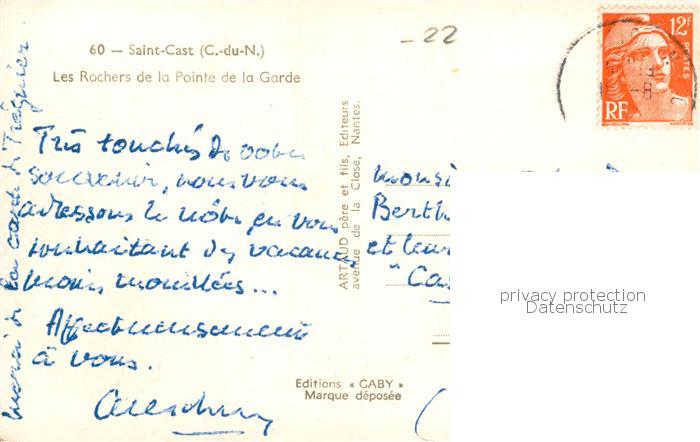 60 — Saint-Cast (C.-du-N.)
Les Rochers de la Pointe de la Garde
Très touchés de votre
souvenir, nous vous
adressons le nôtre en vous
souhaitant des vacances
moins mouillées...
Affectueusement
à vous.
merci de la carte de Tréguier
ARTAUD père et fils, Editeurs
avenue de la Close, Nantes.
Editions « GABY »
Marque déposée
-22
12F
POSTES
RF
Monsi
Berth
et leur
"Cas
privacy protection
Datenschutz